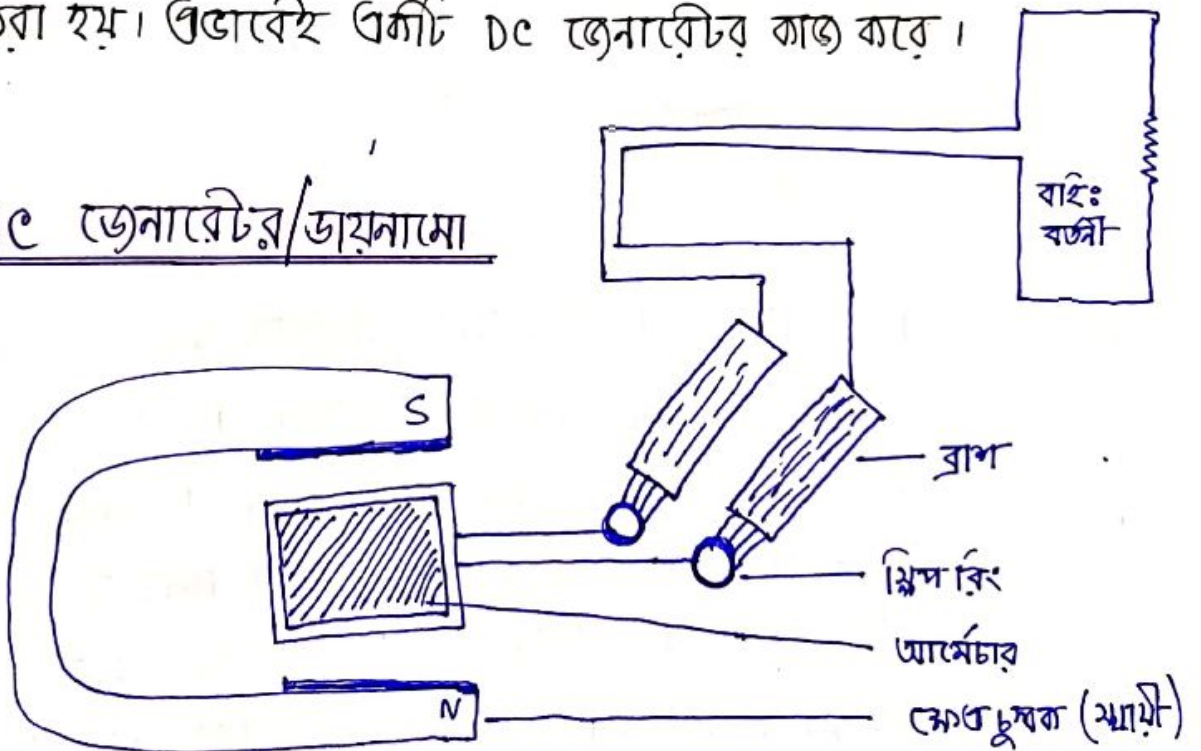 রা হয়। এভাবেই একটি DC জেনারেটর কাজ করে।
C জেনারেটর/ডায়নামো
বহিঃ
বর্তনী
S
ব্রাশ
স্লিপ রিং
আর্মেচার
N
ক্ষেত্র চুম্বক (স্থায়ী)